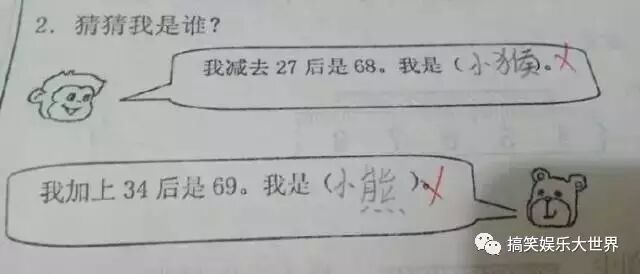 2. 猜猜我是谁?
我减去 27 后是 68。我是(小猴)。
我加上 34 后是 69。我是(小熊)。
搞笑娱乐大世界